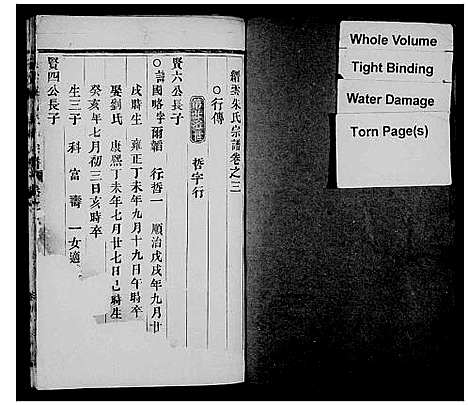 縉雲朱氏宗譜卷之三
○行傳
第廿五世
哲字行
賢六公長子
○諱國略字爾韜 行哲一 順治戊戌年九月廿
戌時生 雍正丁未年九月十九日午時卒
娶劉氏 康熙丁未年七月廿七日巳時生
癸亥年七月初三日亥時卒
生三子 科 富 壽 一女適
賢四公長子
Whole Volume
Tight Binding
Water Damage
Torn Page(s)